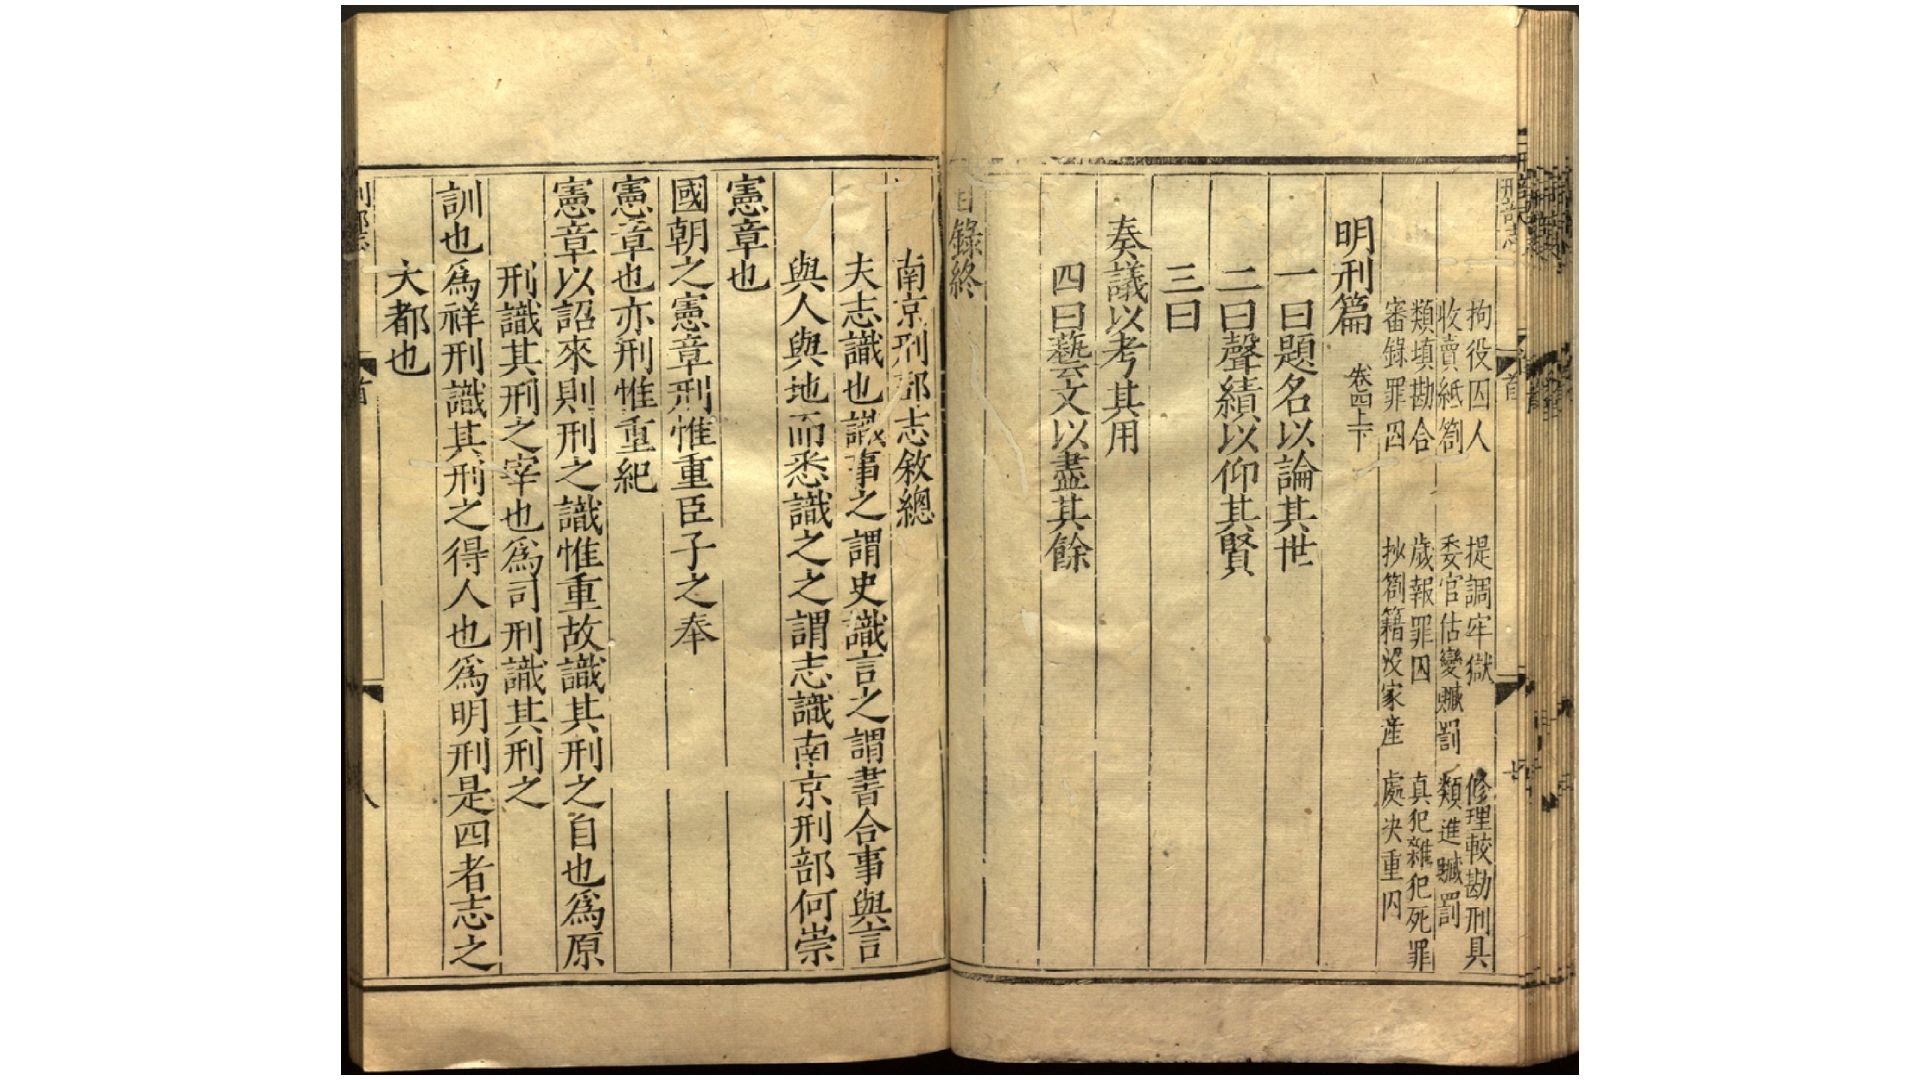 刑部志
首
七
拘役囚人 提調牢獄 修理較勘刑具
收賣紙劄 委官估變贓罰 類進贓罰
類填勘合 歲報罪囚 真犯雜犯死罪
審錄罪囚 抄劄籍沒家產 處決重囚
明刑篇 卷四上下
一曰題名以論其世
二曰聲績以仰其賢
三曰
奏議以考其用
四曰藝文以盡其餘
目錄終
南京刑部志敘總
夫志識也識事之謂史識言之謂書合事與言
與人與地而悉識之之謂志識南京刑部何崇
憲章也
國朝之憲章刑惟重臣子之奉
憲章也亦刑惟重紀
憲章以詔來則刑之識惟重故識其刑之自也爲原
刑識其刑之宰也爲司刑識其刑之
訓也爲祥刑識其刑之得人也爲明刑是四者志之
大都也
刑部志
首
八